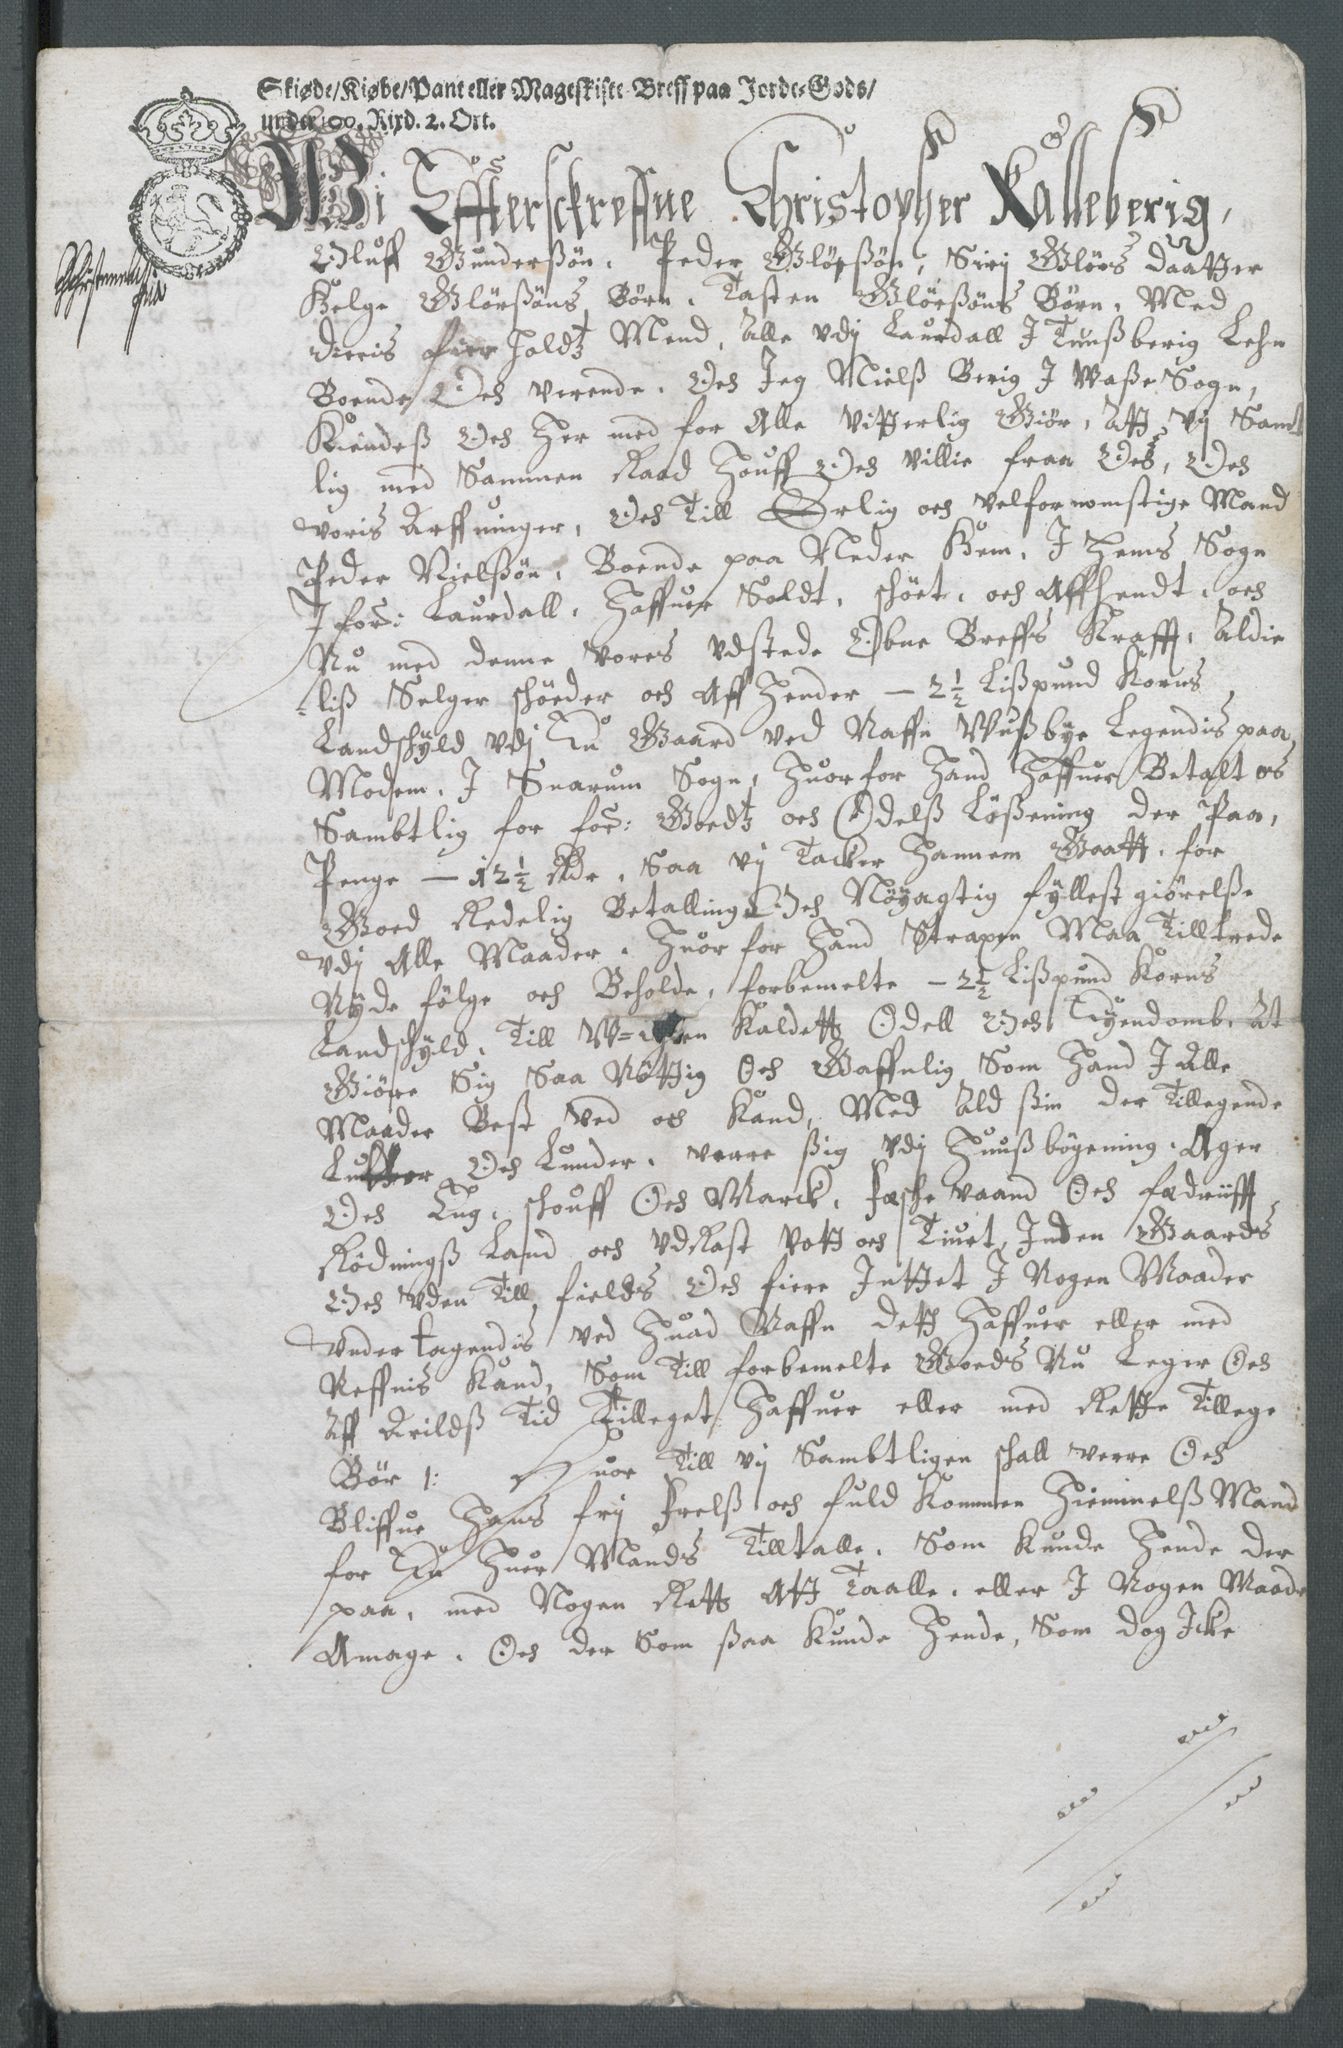 Skiøde/Kiøbe/Pant eller Mageskiste-Breff paa Jorde-Gods/
under 100. Rixd. 2. Ort.
Wi Effterschreffne Christopher Kalleberig,
Oluff Gunderßön, Peder Glörßön, Siri Glörs daatter
Helge Glörßöns Börn, Tasten Glörßöns Börn, Med
dieris Haldtz Mend, Alle vdj Laurdall J Tunßberig Lehn
Boende Och verende. Och Jeg Nielß Berig J Waße Sogn,
Kiendeß Och Her med for Alle vitterlig Giör, Att vij Samt
lig med Sammen Raad Houff Och villie fraa Oeß, Och
voris Arffuinger, Och Till Erlig och velfornomstige Mand
Peder Nielßön, Boende paa Neder Hem, J Hems Sogn
J for: Laurdall, Haffuer Soldt, schöet, och Affhendt, och
Nu med denne vores vdstede Obne Breffs Krafft, Aldie
liß Selger schöeder och Aff Hender - 2½ Lißpund Korns
Landschyld vdj En Gaard ved Naffn Wußbye Legendis paa
Modem, J Snarum Sogn, Huorfor Hand Haffuer Betalt os
Sambtlig for for: Goedtz och Odelß Lößening der Paa,
Penge - 12½ Rdr, Saa vij Tacker Hannem Gaatt, for
Goed Redelig Betalling Och Nöyagtig fyllest giörelße
vdj Alle Maader, Huor for Hand Straxen Maa Tilltrede
Nyde fölge och Beholde, forbemelte - 2½ Lißpund Korns
Landschyld, Till Kaldett Odell Och Eyendomb, At
Giöre Sig Saa Nöttig Och Gaffnlig Som Hand J Alle
Maader Best ved och Kand, Med Ald ßin der Tillegende
Och Lunder, verre ßig vdj Huußbögening, Ager
Och Eng, schouff Och Marck, Fische vaand Och fædrifft,
Rödningß Land och vdRast vott och Tiurt, Inden Gaards
Och vden Till fields Och fiere Inttet J Nogen Maader
vndertagendis ved Huad Naffn dett Haffuer eller med
Neffnis Kand, Som Till forbemelte Goeds Nu Leger Och
Aff Arildß Tid Tilleget Haffuer eller med Rette Tillege
Bör 1: Huor Till vij Sambtligen schall verre Och
Bliffue Hans frij Frelß och fuld Kommen Hiemmelß Mand
for En Huer Mands Tilltalle, Som Kunde Hende der
paa, med Nogen Rett Att Taalle, eller J Nogen Maade
Amage, Och der Som ßaa Kunde Hende, Som dog Icke